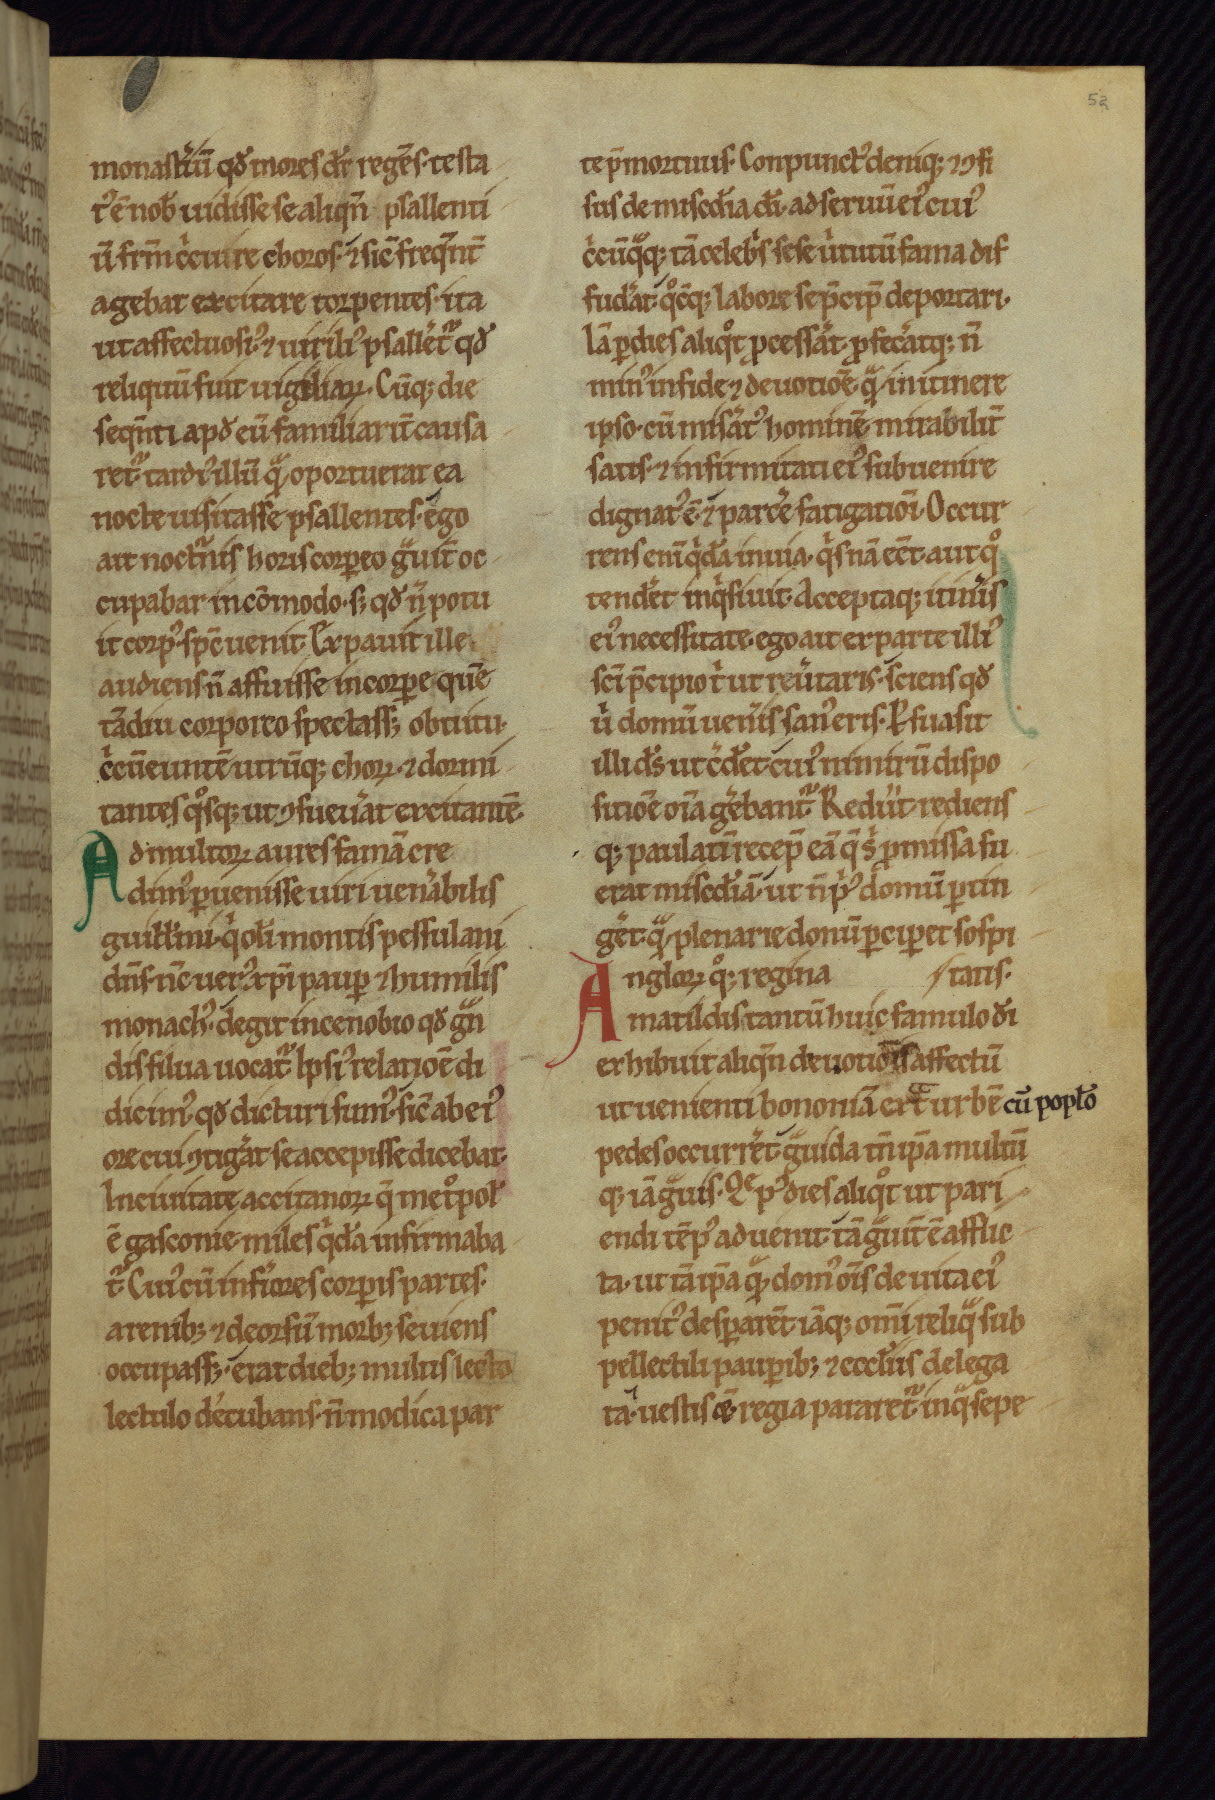 52
monast̾iū qd̾ mores dr̄ regēs. testa
t᷒ ē nob̾ uidisse se aliqn̄ psallenti
ū fr̄m c̾cuire choros. ⁊ sic̄ freqn̄t
agebat excitare torpentes. ita
ut affectuosi᷒ ⁊ uirili᷒ psallēt᷑ qd̾
reliquū fuit uigiliaꝝ. Cūq; die
seqn̄ti apd̾ eū familiarit̄ causa
ret᷑ tardi᷒ illū qᷓ oportuerat ea
nocte uisitasse psallentes. ego
ait noct᷑nis horis corꝑeo gᷓuit̄ oc
cupabar incōmodo. s; qd̾ n̄ potu
it corp᷒ sp̄c uenit. Expauit ille
audiens n̄ affuisse in corꝑe quē
tādiu corporeo spectass; obtutu.
c̾cūeuntē utrūq; choꝝ. ⁊ dormi
tantes qͦsq; ut ꝯsueu̾at excitantē.
Ad multoꝝ aures famā cre
dim᷒ ꝑuenisse uiri uenᷓabilis
guill̾mi. qͥ ol̾i montis pessulani
dn̄s. nc̄ uer᷒ xp̄i pauꝑ ⁊ humilis
monach᷒. degit in cenobio qd̾ gᷓn
dis silua uocat᷑. Ipsi᷒ relatiōe di
dicim᷒ qd̾ dicturi sum᷒. sic̄ ab ei᷒
ore cui ꝯtig̾at se accepisse dicebat.
In ciuitate accitanoꝝ q̄ met̾pol̾
ē gasconie. miles qͥdā infirmaba
t᷑. Cui᷒ cū inf̾iores corꝑis partes.
a renib; ⁊ deorsū morb᷒ seuiens
occupass;. erat dieb; multis lecto
lectulo decubans. n̄ modica par
te p̄mortuus. Conpunct᷒ deniq; ⁊ ꝯfi
sus de mis̄cd̾ia dī. ad seruū ei᷒ cui᷒
c̾cūqᷓq; tā celebͥs sese u̾tutū fama dif
fud̾at. qͦcq; labore se p̄cip̄ deportari.
Iā ꝑ dies aliqͦt ꝓcess̾at. ꝓfec̾atq; n̄
min᷒ in fide ⁊ deuotiōe qᷓ in itinere
ipso. cū mis̾at᷒ hominē mirabilit̄
satis. ⁊ infirmitati ei᷒ subuenire
dignat᷒ ē. ⁊ parc̾e fatigatiōi. Occur
rens eni̅ qͥdā in uia. qͥsnā eēt. aut qͦ
tend̾et inqͥsiuit. Acceptaq; itin̾is
ei᷒ necessitate. ego ait ex parte illi᷒
scī p̄cipio t̾ ut reu̾taris. sciens qd̾
u̾ domū uen̾is san᷒ eris. P̾suasit
illi d̄s ut c̾det. cui᷒ nimirū dispo
sitiōe oīa g̾ebant᷑. Rediit. rediens
q; paulatī recep̄ eā q̄ sͥ ꝓmissa fu
erat mis̄cd̾iā. ut n̄ pͥ᷒ domū ꝑtin
g̾et. qᷓ plenarie donū ꝑciꝑet sospi
tatis.
Angloꝝ qͦ; regina
matildis tantū huic famulo dī
exhibuit aliqn̄ deuotiōis affectū
ut uenienti bononiā ext̾ urbē cū popl̾o
pedes occurr̾et. gᷓuida tn̄ ip̄a multū
q; iā gᷓuis. Que p᷒ dies aliqͦt ut pari
endi tēp᷒ aduenit. tā gᷓuit̄ ē afflic
ta. ut tā ip̄a qᷓ dom᷒ oīs de uita ei᷒
penit᷒ desꝑaret. iāq; om̄i reliqᷓ sub
pellectili pauꝑib; ⁊ eccl̾iis delega
ta. uestis ē regia pararet᷑. in qᷓ sepe